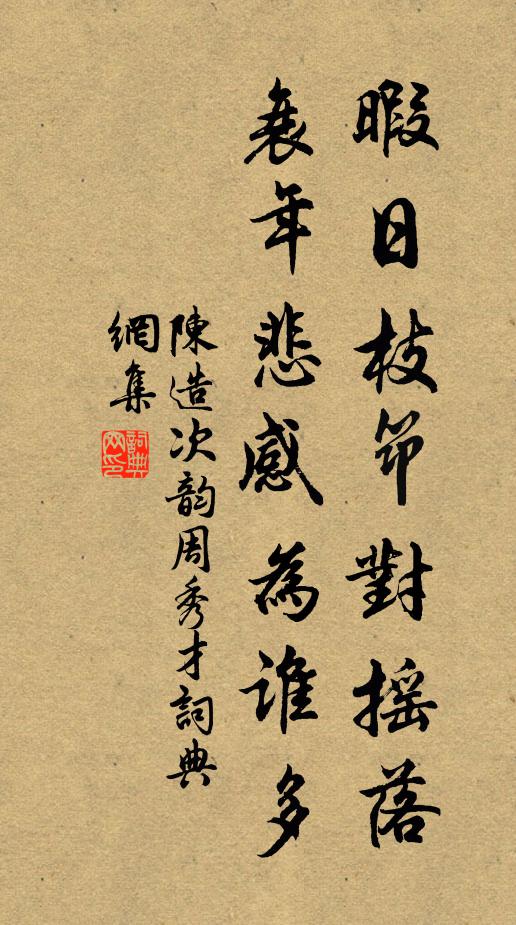 暇日枝笻對摇落
衰年悲感為誰多
陳造次韵周秀才詞典
網集
詞典網印